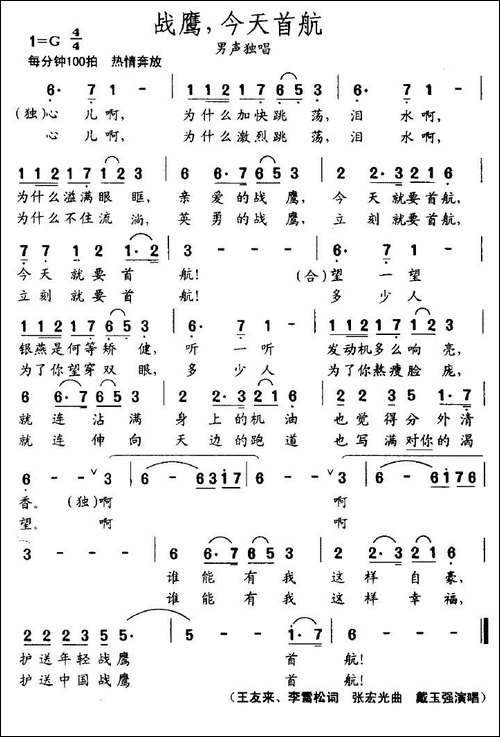 战鹰，今天首航
男声独唱
1=G 4/4
每分钟100拍 热情奔放
6· 7 1 - 1 1 2 1 7 6 5 3 6· 7 1 -
（独）心 儿啊， 为什么加快跳 荡，泪 水啊，
心 儿啊， 为什么激烈跳 荡，泪 水啊，
1 1 2 1 7 1 2 3 6 6· 7 6 5 3 2 2· 3 2 2 1 6
为什么溢满眼 眶， 亲 爱的战鹰， 今 天就要首航，
为什么不住流 淌， 英 勇的战鹰， 立 刻就要首航，
7 7 1 2 1· 2 3 - - - 6· 7 1 -
今 天 就 要 首 航！ （合）望 一 望
立 刻 就 要 首 航！ 多 少 人
1 1 2 1 7 6 5 3 6· 7 1 - 1 1 2 1 7 6 5 3
银燕是何等矫 健， 听 一 听 发动机多么响 亮，
为了你望穿双 眼， 多 少 人 为了你熬瘦脸 庞，
6 6· 7 6 5 3 2 2· 3 2 1 6 3 2 3 5 1· 7
就 连 沾 满 身 上 的 机 油 也 觉 得 分 外 清
就 连 伸 向 天 边 的 跑 道 也 写 满 对你 的 渴
6 - - 3 6 - 6 3 1 7 6 - - 3 6 - 6 1 7 6
香。（独）啊 啊
望。 啊 啊
3 - - - 6 6· 7 6 5 3 2 2· 3 2 1 6
谁 能 有 我 这 样 自 豪，
谁 能 有 我 这 样 幸 福，
2 2 2 3 5 5· 5· - - - 3 - 1· 7 6 - - -
护 送 年 轻 战 鹰 首 航！
护 送 中 国 战 鹰 首 航！
（王友来、李雷松词 张宏光曲 戴玉强演唱）